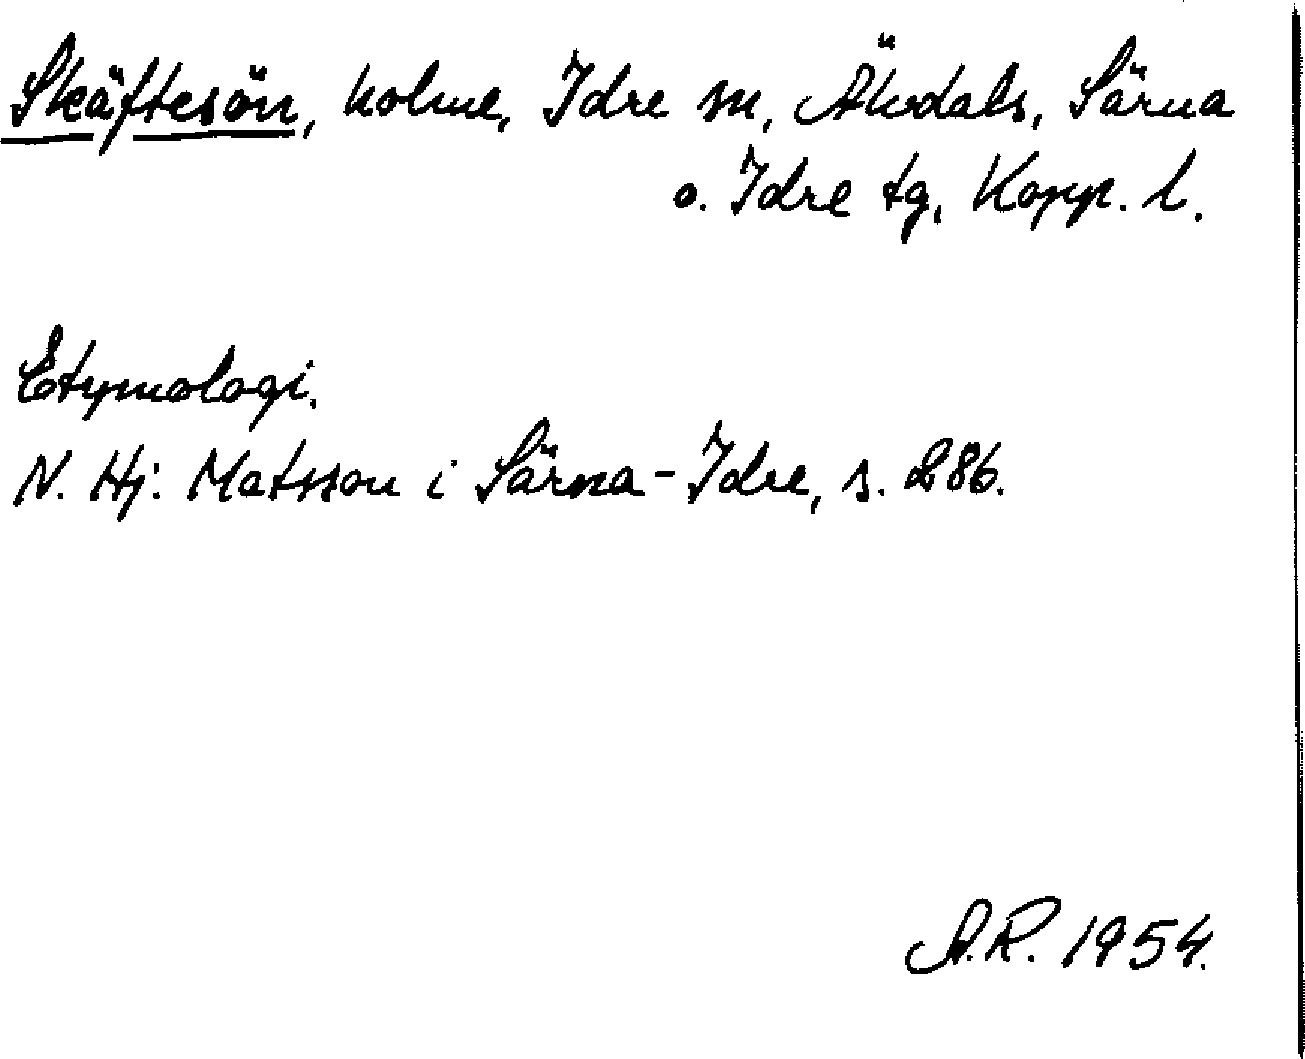 Skäftesön, holme, Idre sn, Älvdals, Särna
o. Idre tg, Kopp. l.
Etymologi.
N. Hj. Matsson i Särna-Idre, s. 286.
A.R. 1954.